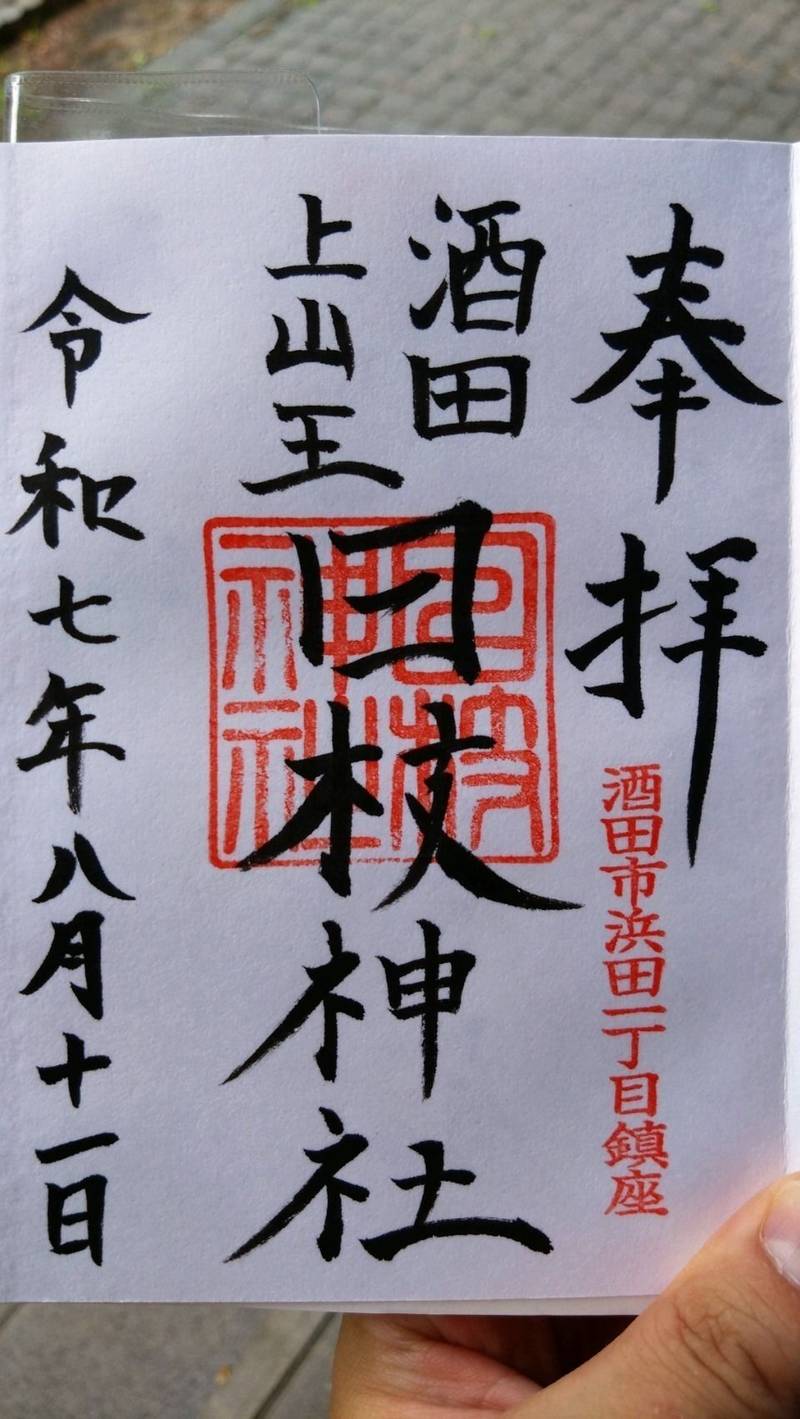 奉拝
酒田市浜田一丁目鎮座
酒田
上山王
日枝神社
日枝神社
令和七年八月十一日